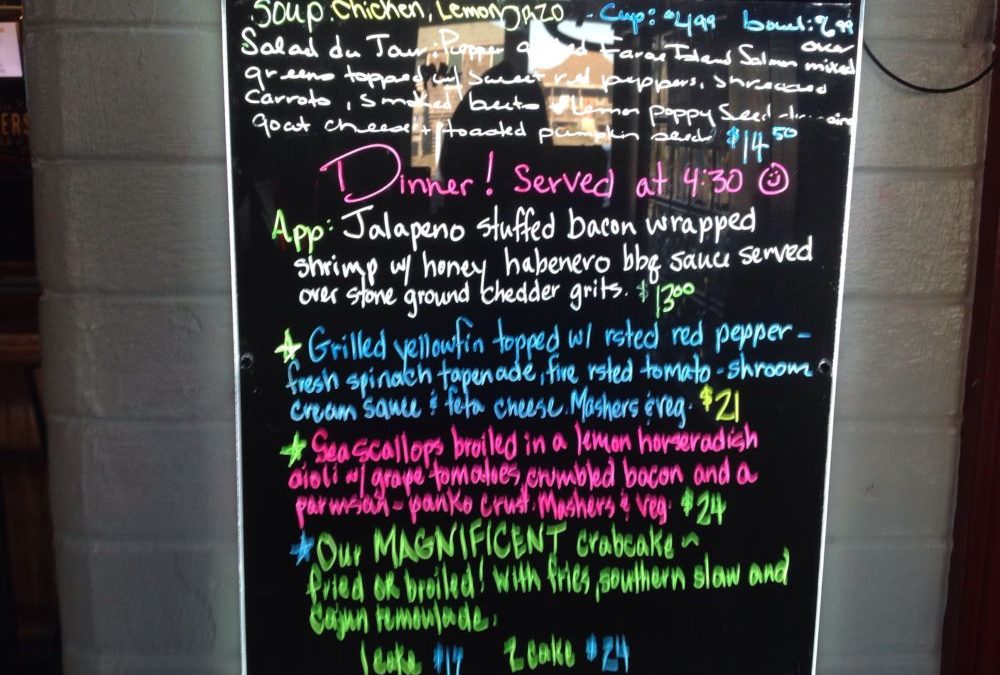 Soup: Chicken, Lemon, Orzo - Cup: $4.99 bowl: 6.99
Salad du Jour: Pepper Faroe Island Salmon over mixed
greens topped w/ sweet red peppers, shredded
Carrots, smoked beets + lemon poppy Seed
goat cheese + toasted pumpkin seeds $14.50
Dinner! Served at 4:30 ☺
App: Jalapeno stuffed bacon wrapped
shrimp w/ honey habenero bbq sauce served
over stone ground chedder grits. $13.00
Grilled yellowfin topped w/ rsted red pepper -
fresh spinach tapenade, fire rsted tomato - shroom
cream sauce & feta cheese. Mashers & veg. $21
Sea scallops broiled in a lemon horseradish
aioli w/ grape tomatoes, crumbled bacon and a
parmsan - panko crust. Mashers & veg. $24
Our MAGNIFICENT crabcake ~
fried or broiled! with fries, southern slaw and
cajun remoulade.
1 cake $17 2 cake $24